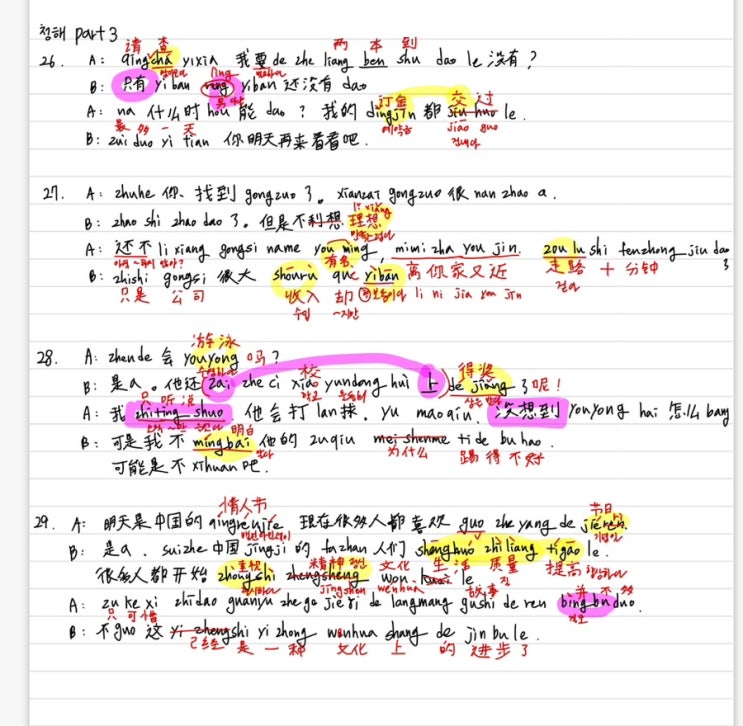 청해 part 3
请 查 两 本 到
26. A: qingcha yixia 我要 de zhe liang ben shu dao le 没有?
B: 只有 yiban yiban 还没有 dao
A: na 什么时 hou 能 dao? 我的 dingjin 都 le.
订金 交 过
예약금 jiao guo
最 多 一 天
B: zui duo yi tian 你明天再来看看吧.
27. A: zhuhe 你, 找到 gongzuo 了. xianzai gongzuo 很 nan zhao a.
li xiang
B: zhao shi zhao dao 了. 但是不利想 理想
A: 还不 li xiang gongsi name you ming, mimi zha you jin. zou lu shi fenzhong jiu dao 了
有名 走路 十 分钟
B: zhishi gongsi 很大 shouru que yiban 离你家又近
只是 公司 收入 却 li ni jia you jin
수입 ~지만
游泳
28. A: zhende 会 youyong 吗?
校 得奖
B: 是a. 他还 zai zhe ci xiao yundong hui 上 de jiang 了呢!
只 听 说
A: 我 zhiting shuo 他会打 lan 球. yu maoqiu. 没想到 youyong hai 怎么 bang
明白
B: 可是我不 mingbai 他的 zuqiu mei shenme ti de bu hao.
为什么 踢得不好
可能是不 xihuan 吧.
情人节 节日
29. A: 明天是中国的 qingrenjie 现在很多人都喜欢 guo zhe yang de jieri.
B: 是a. suizhe 中国 jingji 的 fazhan 人们 shenghuo zhiliang tigao le.
重视 精神 文化 生活 质量 提高
很多人都开始 zhongshi zhengsheng wen le
jingshen wenhua 故事 并 不 多
A: zu ke xi zhidao guanyu zhege jieri de langmang gushi de ren bing bu duo.
只 可惜
B: 不guo 这 yi zhengshi yi zhong wenhua shang de jin bu le.
已经 是 一 种 文化 上 的 进步 了